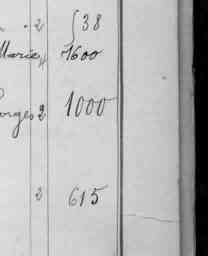 2 38
Marie 1600
orges 2 1000
2 615